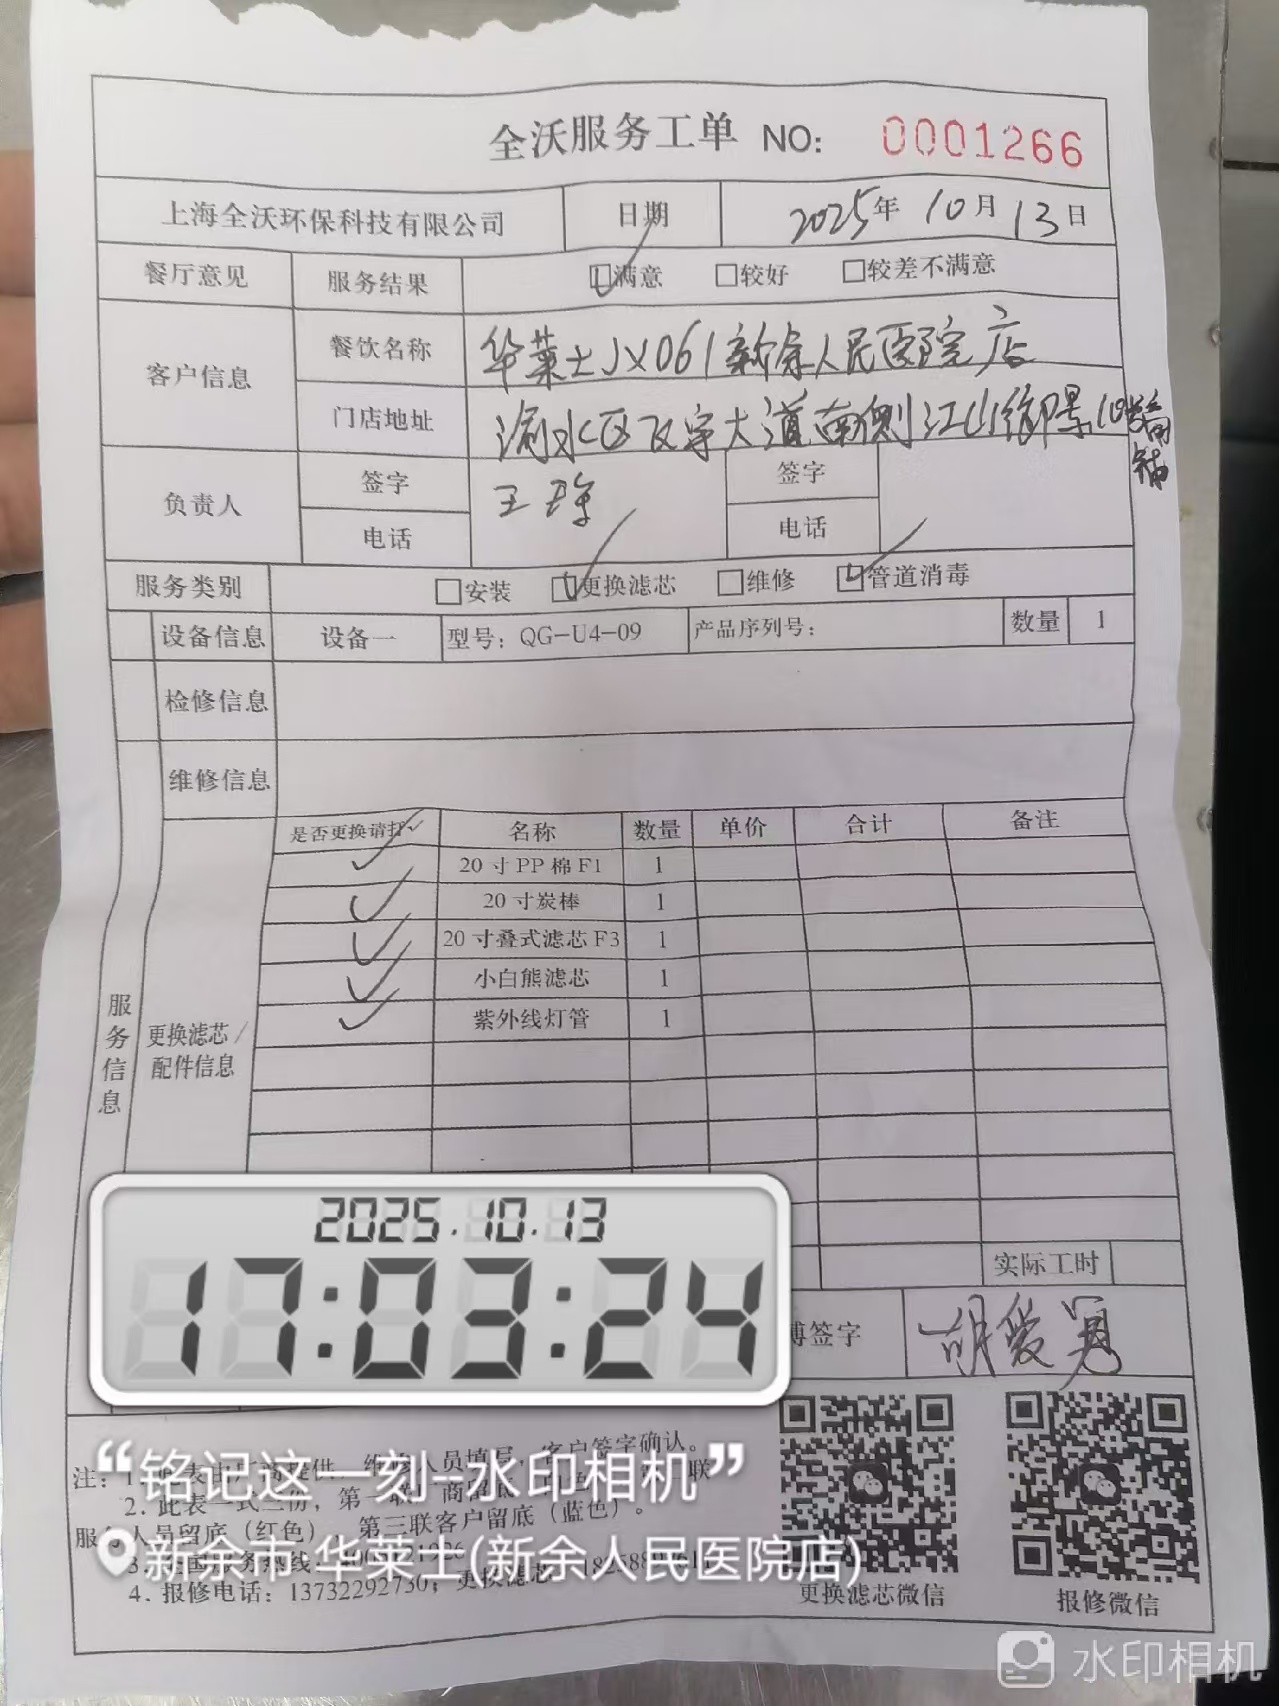 全沃服务工单 NO: 0001266
上海全沃环保科技有限公司 日期 2025年 10月 13日
餐厅意见 服务结果 满意 较好 较差不满意
客户信息 餐饮名称 华莱士JX061新余人民医院店
门店地址 渝水区 大道南侧江山御景10 商铺
负责人 签字 王 签字
电话 电话
服务类别 安装 更换滤芯 维修 管道消毒
设备信息 设备一 型号: QG-U4-09 产品序列号: 数量 1
检修信息
维修信息
服务信息
更换滤芯/配件信息
是否更换请打✓ 名称 数量 单价 合计 备注
✓ 20寸PP棉F1 1
✓ 20寸炭棒 1
✓ 20寸叠式滤芯F3 1
✓ 小白熊滤芯 1
✓ 紫外线灯管 1
实际工时
签字 胡爱
2025.10.13
17:03:24
“铭记这一刻--水印相机”
新余市·华莱士(新余人民医院店)
注: 1. 维修人员填写,客户签字确认。
2. 此表一式三份,第一联
服务人员留底(红色),第三联客户留底(蓝色)。
3. 全国服务热线:
4. 报修电话: 13732292730; 更换滤芯
更换滤芯微信 报修微信
水印相机